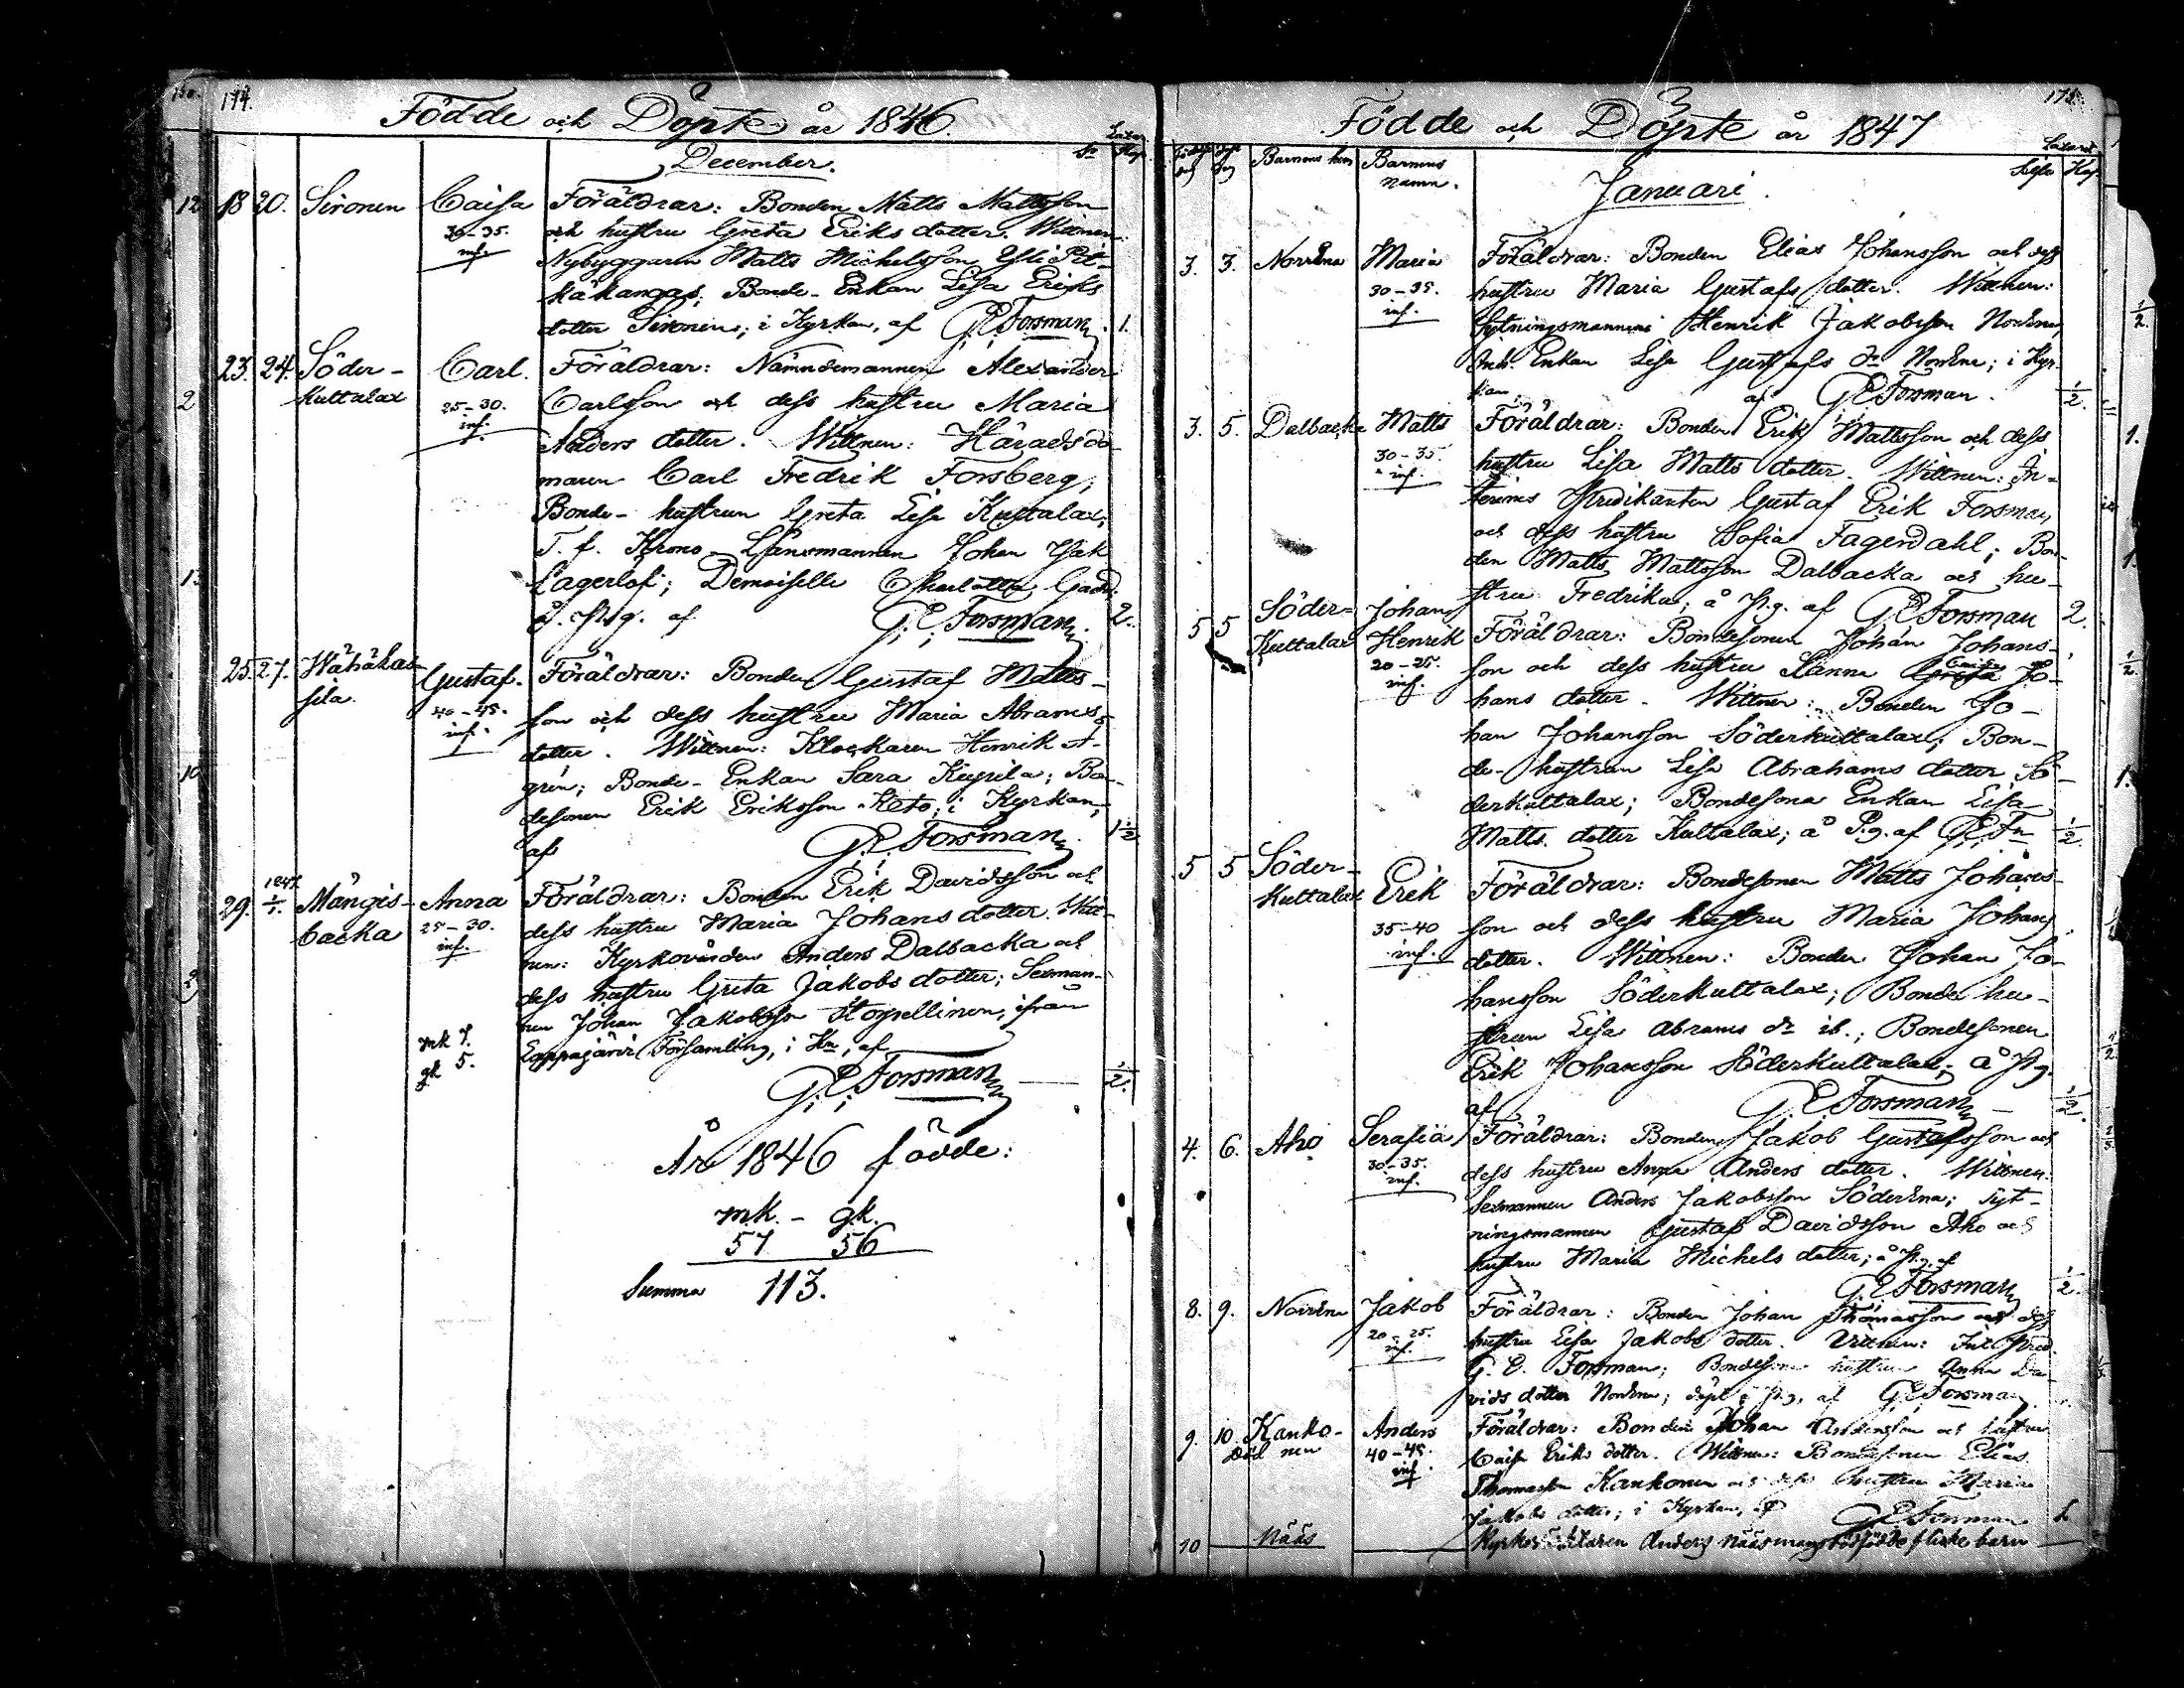 174.
Födde och Döpte år 1846.
December.
18 20. Sironen Caisa Föräldrar: Bonden Matts Mattsson
30-35. och hustru Greta Eriks dotter. Wittnen:
inf. Nybyggaren Matts Michelsson
Bonde-Enkan Lisa Eriks
dotter Sironen; i Kyrkan, af G. E. Forsman. 1.
23. 24. Söder- Carl. Föräldrar: Nämndemannen Alexander
Kuttalax 25-30. Carlsson och dess hustru Maria
inf. Anders dotter. Wittnen: Häradsdo-
maren Carl Fredrik Forsberg;
Bonde-hustrun Greta Lisa Kuttalax;
T. f. Krono-Länsmannen Johan Jak
Lagerlöf; Demoiselle Charlotta Gadd;
å P.g. af G. E. Forsman. 2.
25. 27. Wähäkai- Gustaf. Föräldrar: Bonden Gustaf Matts-
40-45. son och dess hustru Maria Abrams
inf. dotter. Wittnen: Klockaren Henrik A-
grén; Bonde-Enkan Sara; Bon-
desonen Erik Eriksson Keto; i Kyrkan,
af G. E. Forsman 1 1/2
29. 1847 2/1. Mångis- Anna Föräldrar: Bonden Erik Davidsson och
backa 25-30. dess hustru Maria Johans dotter. Witt-
inf. nen: Kyrkovärden Anders Dalbacka och
dess hustru Greta Jakobs dotter; Sexman-
nen Johan Jakobsson Hopellinen, ifrån
mk 7. Lappajärvi Församling, i Kn, af
gk 5.
G. E. Forsman 1/2.
År 1846 födde:
mk. - gk.
57 56
Summa 113.
175.
Födde och Döpte år 1847
Barnens hem Barnens namn.
Januari.
3. 3. Norrena Maria Föräldrar: Bonden Elias Johansson och dess
30-35. hustru Maria Gustafs dotter. Wittnen:
inf. Sytningsmannen Henrik Jakobsson Norrena,
Enkan Lisa Gustafs dr Norrena; i Kyr-
kan af G. E. Forsman. 1/2.
3. 5. Dalbacka Matts Föräldrar: Bonden Erik Mattsson och dess
30-35. hustru Lisa Matts dotter. Wittnen: In-
inf. terims Predikanten Gustaf Erik Forsman
och dess hustru Sofia Fagerdahl; Bon-
den Matts Mattsson Dalbacka och hu-
stru Fredrika; å P.g. af G. E. Forsman 2.
5 5 Söder- Johan Föräldrar: Bondesonen Johan Johans-
Kuttalax Henrik son och dess hustru Sanna Jo-
20-25. hans dotter. Wittnen: Bonden Jo-
inf. han Johansson Söderkuttalax; Bon-
de-hustrun Lisa Abrahams dotter Sö-
derkuttalax; Bondesona Enkan Lisa
Matts dotter Kuttalax; å P.g. af G. E. Fn 1/2.
5 5 Söder- Erik Föräldrar: Bondesonen Matts Johans-
Kuttalax 35-40 son och dess hustru Maria Johans
inf. dotter. Wittnen: Bonden Johan Jo-
hansson Söderkuttalax; Bonde hu-
strun Lisa Abrams dr ib.; Bondesonen
Erik Johansson Söderkuttalax; å P.g.
af G. E. Forsman 1/2.
4. 6. Aho Serafia Föräldrar: Bonden Jakob Gustafsson och
30-35. dess hustru Anna Anders dotter. Wittnen:
inf. Sexmannen Anders Jakobsson Söderena; Syt-
ningsmannen Gustaf Davidsson Aho och
hustru Maria Michels dotter; å P.g. af
G. E. Forsman 1/2.
8. 9. Norrena Jakob Föräldrar: Bonden Johan Thomasson och dess
20-25. hustru Lisa Jakobs dotter. Wittnen: Int. Pred.
inf. G. E. Forsman; Bondesons hustru Anna Da-
vids dotter Norrena; P.g. af G. E. Forsman
9. 10. Kanko- Anders Föräldrar: Bonden Johan Andersson och hustru
död nen 40-45. Caisa Eriks dotter. Wittnen: Bondesonen Elias
inf. Thomasson Kankonen och dess hustru Maria
Jakobs dotter; i Kyrkan, af G. E. Forsman 1.
10 Nääs Anders Nääsmans dödfödde flicke barn